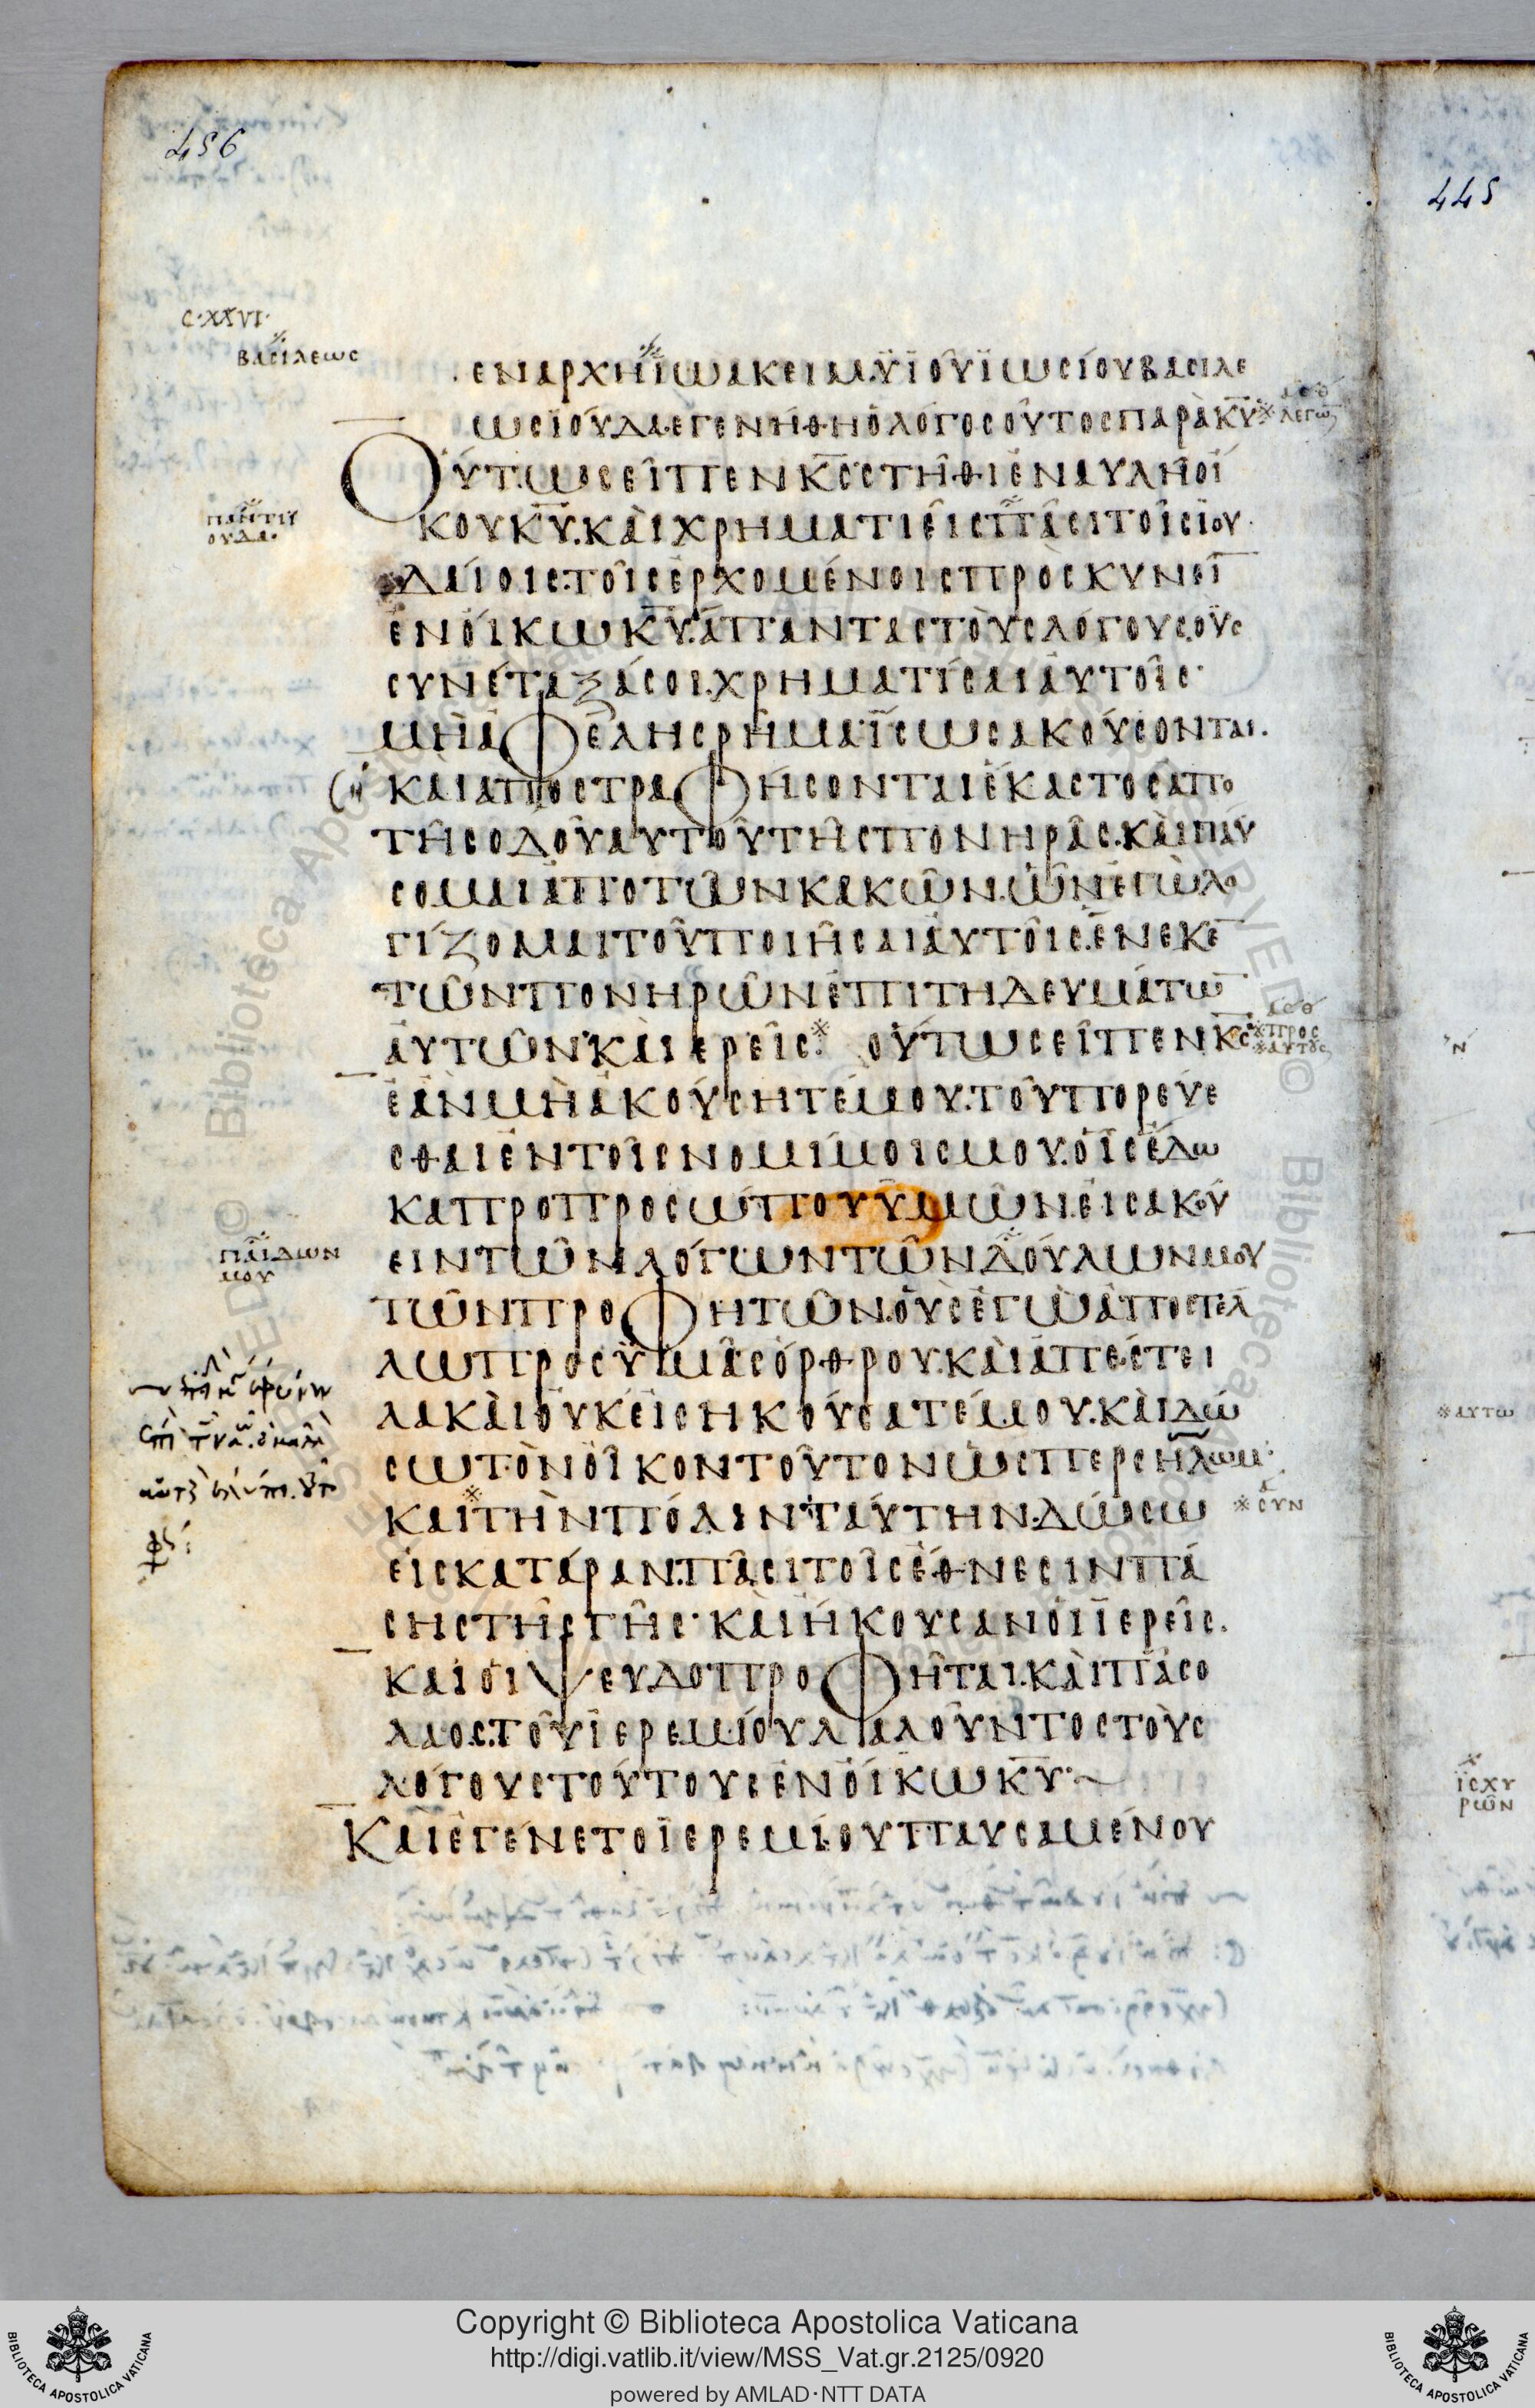 456
445
C·XXVI·
ΒΑCΙΛΕΩC
ΕΝΑΡΧΗΪΩΑΚΕΙΜ.ΥΪΟΥΪΩCΙΟΥΒΑCΙΛΕ
ΩCΪΟΥΔΑ·ΕΓΕΝΗΘΗΟΛΟΓΟCΟΥΤΟCΠΑΡΑΚΥ
※ΛΕΓΩ
ΟΥΤΩCΕΙΠΕΝΚC·CΤΗΘΙΕΝΑΥΛΗΟΙ
ΠΑΝΤΙΪ
ΟΥΔΑ·
ΚΟΥΚΥ.ΚΑΙΧΡΗΜΑΤΙΕΙCΠΑCΙΤΟΙCΪΟΥ
ΔΑΙΟΙC.ΤΟΙCΕΡΧΟΜΕΝΟΙCΠΡΟCΚΥΝΕΙ
ΕΝΟΙΚΩΚΥ.ΑΠΑΝΤΑCΤΟΥCΛΟΓΟΥC.ΟΥC
CΥΝΕΤΑΞΑCΟΙ.ΧΡΗΜΑΤΙCΑΙΑΥΤΟΙC·
ΜΗΑΦΕΛΗCΡΗΜΑ·ΪCΩCΑΚΟΥCΟΝΤΑΙ.
ΚΑΙΑΠΟCΤΡΑΦΗCΟΝΤΑΙΕΚΑCΤΟCΑΠΟ
ΤΗCΟΔΟΥΑΥΤΟΥΤΗCΠΟΝΗΡΑC.ΚΑΙΠΑΥ
CΟΜΑΙΑΠΟΤΩΝΚΑΚΩΝ.ΩΝΕΓΩΛΟ
ΓΙΖΟΜΑΙΤΟΥΠΟΙΗCΑΙΑΥΤΟΙC.ΕΝΕΚΕ
ΤΩΝΠΟΝΗΡΩΝΕΠΙΤΗΔΕΥΜΑΤΩ
ΑΥΤΩΝ·ΚΑΙΕΡΕΙC※ ΟΥΤΩCΕΙΠΕΝΚC
※ΠΡΟC
※ΑΥΤΟΥC
ΕΑΝΜΗΑΚΟΥCΗΤΕΜΟΥ.ΤΟΥΠΟΡΕΥΕ
CΘΑΙΕΝΤΟΙCΝΟΜΙΜΟΙCΜΟΥ.ΟΙCΕΔΩ
ΚΑΠΡΟΠΡΟCΩΠΟΥΥΜΩΝ.ΕΙCΑΚΟΥ
ΠΑΙΔΩΝ
ΜΟΥ
ΕΙΝΤΩΝΛΟΓΩΝΤΩΝΔΟΥΛΩΝΜΟΥ
ΤΩΝΠΡΟΦΗΤΩΝ.ΟΥCΕΓΩΑΠΟCΤΕΛ
ΛΩΠΡΟCΥΜΑCΟΡΘΡΟΥ.ΚΑΙΑΠΕCΤΕΙ
ΛΑΚΑΙΟΥΚΕΙCΗΚΟΥCΑΤΕΜΟΥ.ΚΑΙΔΩ
CΩΤΟΝΟΙΚΟΝΤΟΥΤΟΝΩCΠΕΡCΗΛΩΜ·
ΚΑΙ※ΤΗΝΠΟΛΙΝΤΑΥΤΗΝ.ΔΩCΩ
※CΥΝ
ΕΙCΚΑΤΑΡΑΝ.ΠΑCΙΤΟΙCΕΘΝΕCΙΝΠΑ
CΗCΤΗCΓΗC·ΚΑΙΗΚΟΥCΑΝΟΙΪΕΡΕΙC.
ΚΑΙΟΙΨΕΥΔΟΠΡΟΦΗΤΑΙ.ΚΑΙΠΑCΟ
ΛΑΟC.ΤΟΥΪΕΡΕΜΙΟΥΛΑΛΟΥΝΤΟCΤΟΥC
ΛΟΓΟΥCΤΟΥΤΟΥCΕΝΟΙΚΩΚΥ·
ΚΑΙΕΓΕΝΕΤΟΪΕΡΕΜΙΟΥΠΑΥCΑΜΕΝΟΥ
※ΑΥΤΩ
ΪCΧΥ
ΡΩΝ
Copyright © Biblioteca Apostolica Vaticana
http://digi.vatlib.it/view/MSS_Vat.gr.2125/0920
powered by AMLAD·NTT DATA
BIBLIOTECA APOSTOLICA VATICANA
BIBLIOTECA APOSTOLICA VATICANA